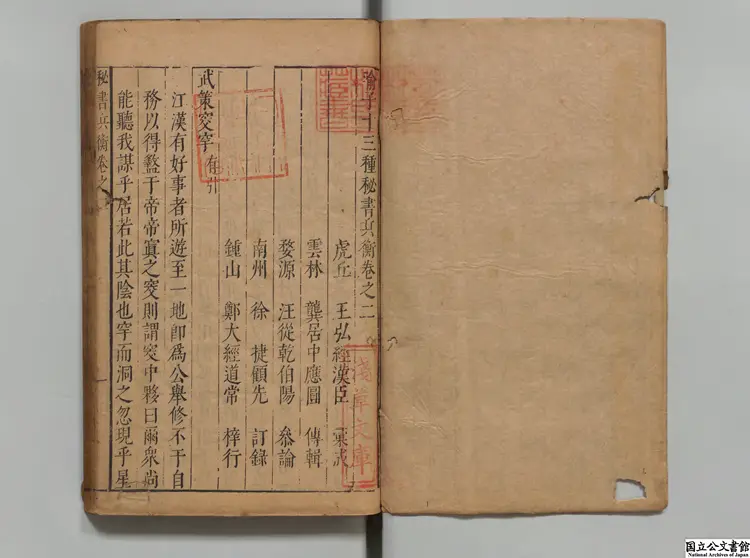 喻子十三種秘書兵衡卷之二
虎丘 王弘經漢臣 彙成
雲林 龔居中應圓 傳輯
婺源 汪從乾伯陽 叅論
南州 徐 捷願先 訂錄
鍾山 鄭大經道常 梓行
武策窔穽有引
江漢有好事者所遊至一地卽爲公舉修不干自
務以得盭于帝帝寘之窔則謂窔中夥曰爾衆尚
能聽我謀乎居若此其陰也穽而洞之忽現乎星
秘書兵衡卷之
淺草文庫
国立公文書館
National Archives of Japan